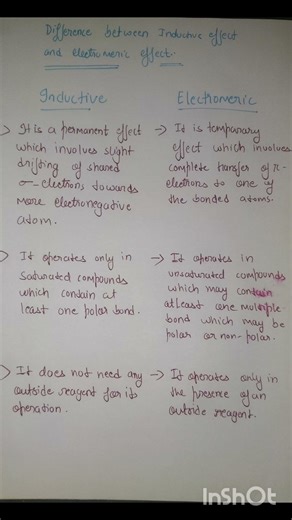 Difference between Inductive effect
and electromeric effect.
Inductive
Electromeric
It is a permanent effect
which involves slight
drifting of shared
σ-electrons towards
more electronegative
atom.
→ It is temporary
effect which involves
complete transfer of π-
electrons to one of
the bonded atoms.
It operates only in
saturated compounds
which contain at
least one polar bond.
→ It operates in
unsaturated compounds
which may contain
atleast one multiple
bond which may be
polar or non-polar.
It does not need any
outside reagent for its
operation.
→ It operates only in
the presence of an
outside reagent.
InShOt